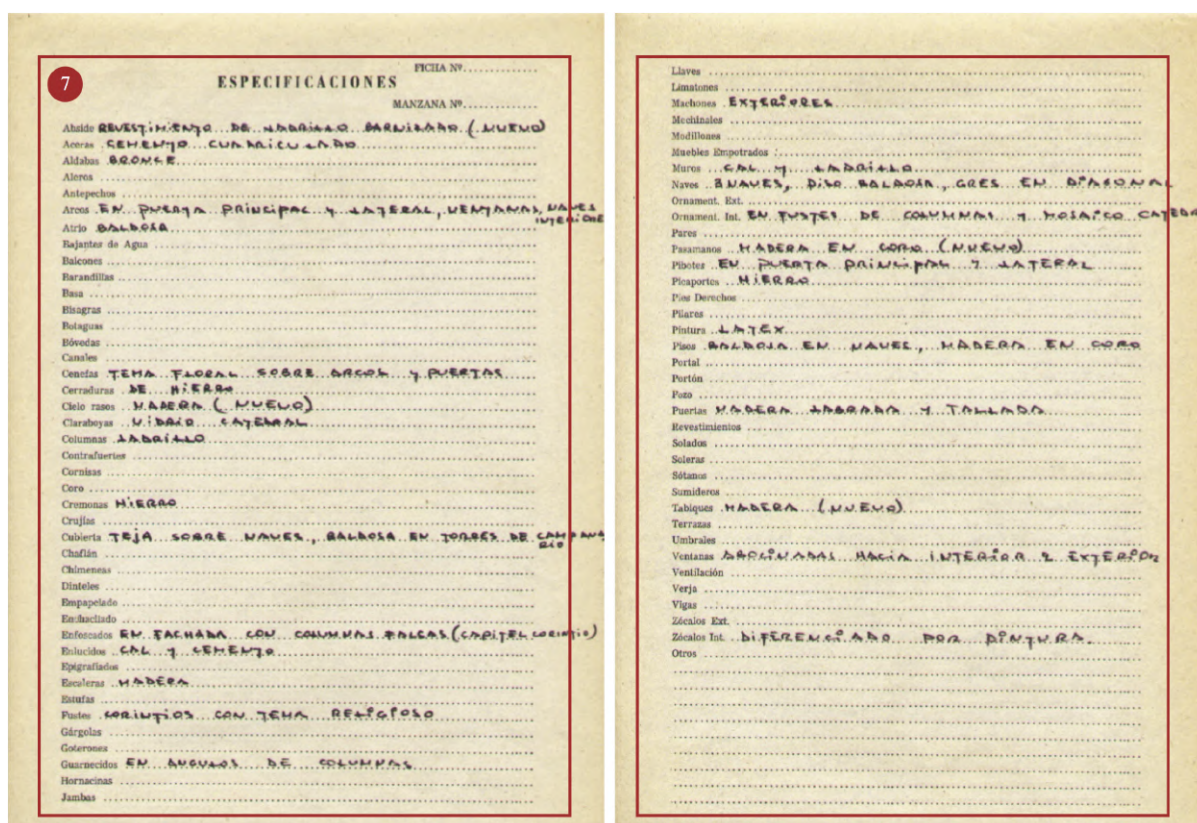 7
FICHA Nº..............
ESPECIFICACIONES
MANZANA Nº..............
Abside REVESTIMIENTO DE LADRILLO BARNIZADO (NUEVO)
Aceras CEMENTO CUADRICULADO
Aldabas BRONCE
Aleros
Antepechos
Arcos EN PUERTA PRINCIPAL Y LATERAL, VENTANAS, NAVES INTERIORE
Atrio BALDOSA
Bajantes de Agua
Balcones
Barandillas
Basa
Bisagras
Botaguas
Bóvedas
Canales
Cenefas TEMA FLORAL SOBRE ARCOS Y PUERTAS
Cerraduras DE HIERRO
Cielo rasos MADERA (NUEVO)
Claraboyas VIDRIO CATEDRAL
Columnas LADRILLO
Contrafuertes
Cornisas
Coro
Cremonas HIERRO
Crujías
Cubierta TEJA SOBRE NAVES, BALDOSA EN TORRES DE CAMPANARIO
Chaflán
Chimeneas
Dinteles
Empapelado
Enchachado
Enfoscados EN FACHADA CON COLUMNAS FALCAS (CAPITEL CORINTIO)
Enlucidos CAL Y CEMENTO
Epigrafiados
Escaleras MADERA
Estufas
Fustes CORINTIOS CON TEMA RELIGIOSO
Gárgolas
Goterones
Guarnecidos EN ANGULOS DE COLUMNAS
Hornacinas
Jambas
Llaves
Limatones
Machones EXTERIORES
Mechinales
Modillones
Muebles Empotrados
Muros CAL Y LADRILLO
Naves 3 NAVES, PISO BALDOSA, GRES EN DIAGONAL
Ornament. Ext.
Ornament. Int. EN FUSTES DE COLUMNAS Y MOSAICO CATEDR
Pares
Pasamanos MADERA EN CORO (NUEVO)
Pibotes EN PUERTA PRINCIPAL Y LATERAL
Picaportes HIERRO
Pies Derechos
Pilares
Pintura LATEX
Pisos BALDOSA EN NAVES, MADERA EN CORO
Portal
Portón
Pozo
Puertas MADERA LABRADA Y TALLADA
Revestimientos
Solados
Soleras
Sótanos
Sumideros
Tabiques MADERA (NUEVO)
Terrazas
Umbrales
Ventanas ABOCINADAS HACIA INTERIOR & EXTERIOR
Ventilación
Verja
Vigas
Zócalos Ext.
Zócalos Int. DIFERENCIADO POR PINTURA.
Otros